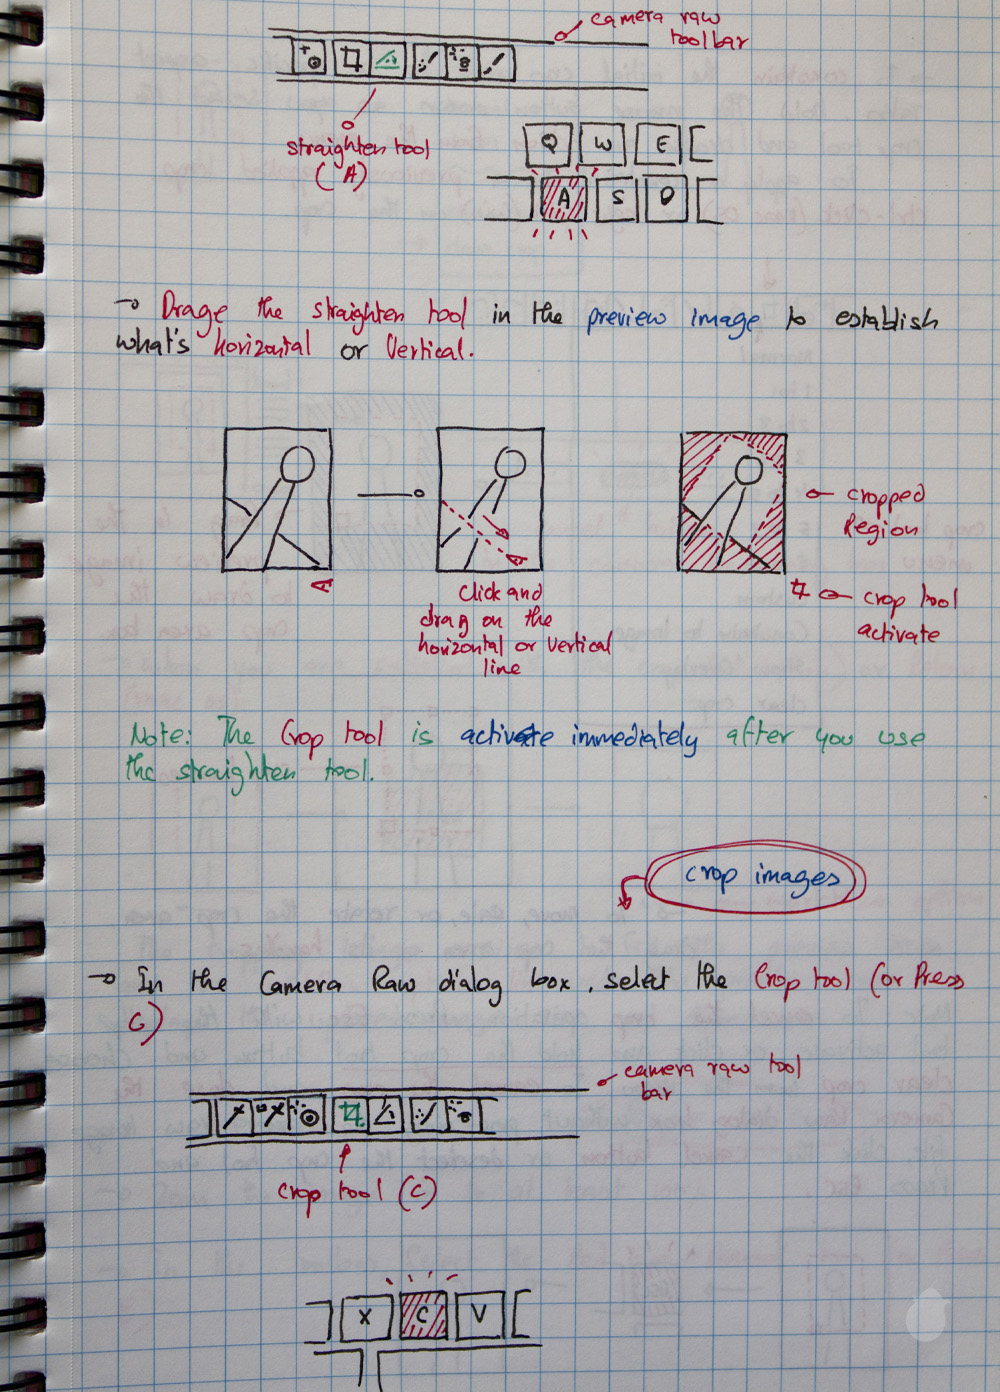 camera raw
toolbar
straighten tool
(A)
Q W E
A S D
→ Drage the straighten tool in the preview image to establish
what's horizontal or Vertical.
cropped
Region
Click and
drag on the
horizontal or vertical
line
crop tool
activate
Note: The Crop tool is activate immediately after you use
the straighten tool.
crop images
→ In the Camera Raw dialog box, select the Crop tool (or Press
C)
camera raw tool
bar
crop tool (C)
X C V